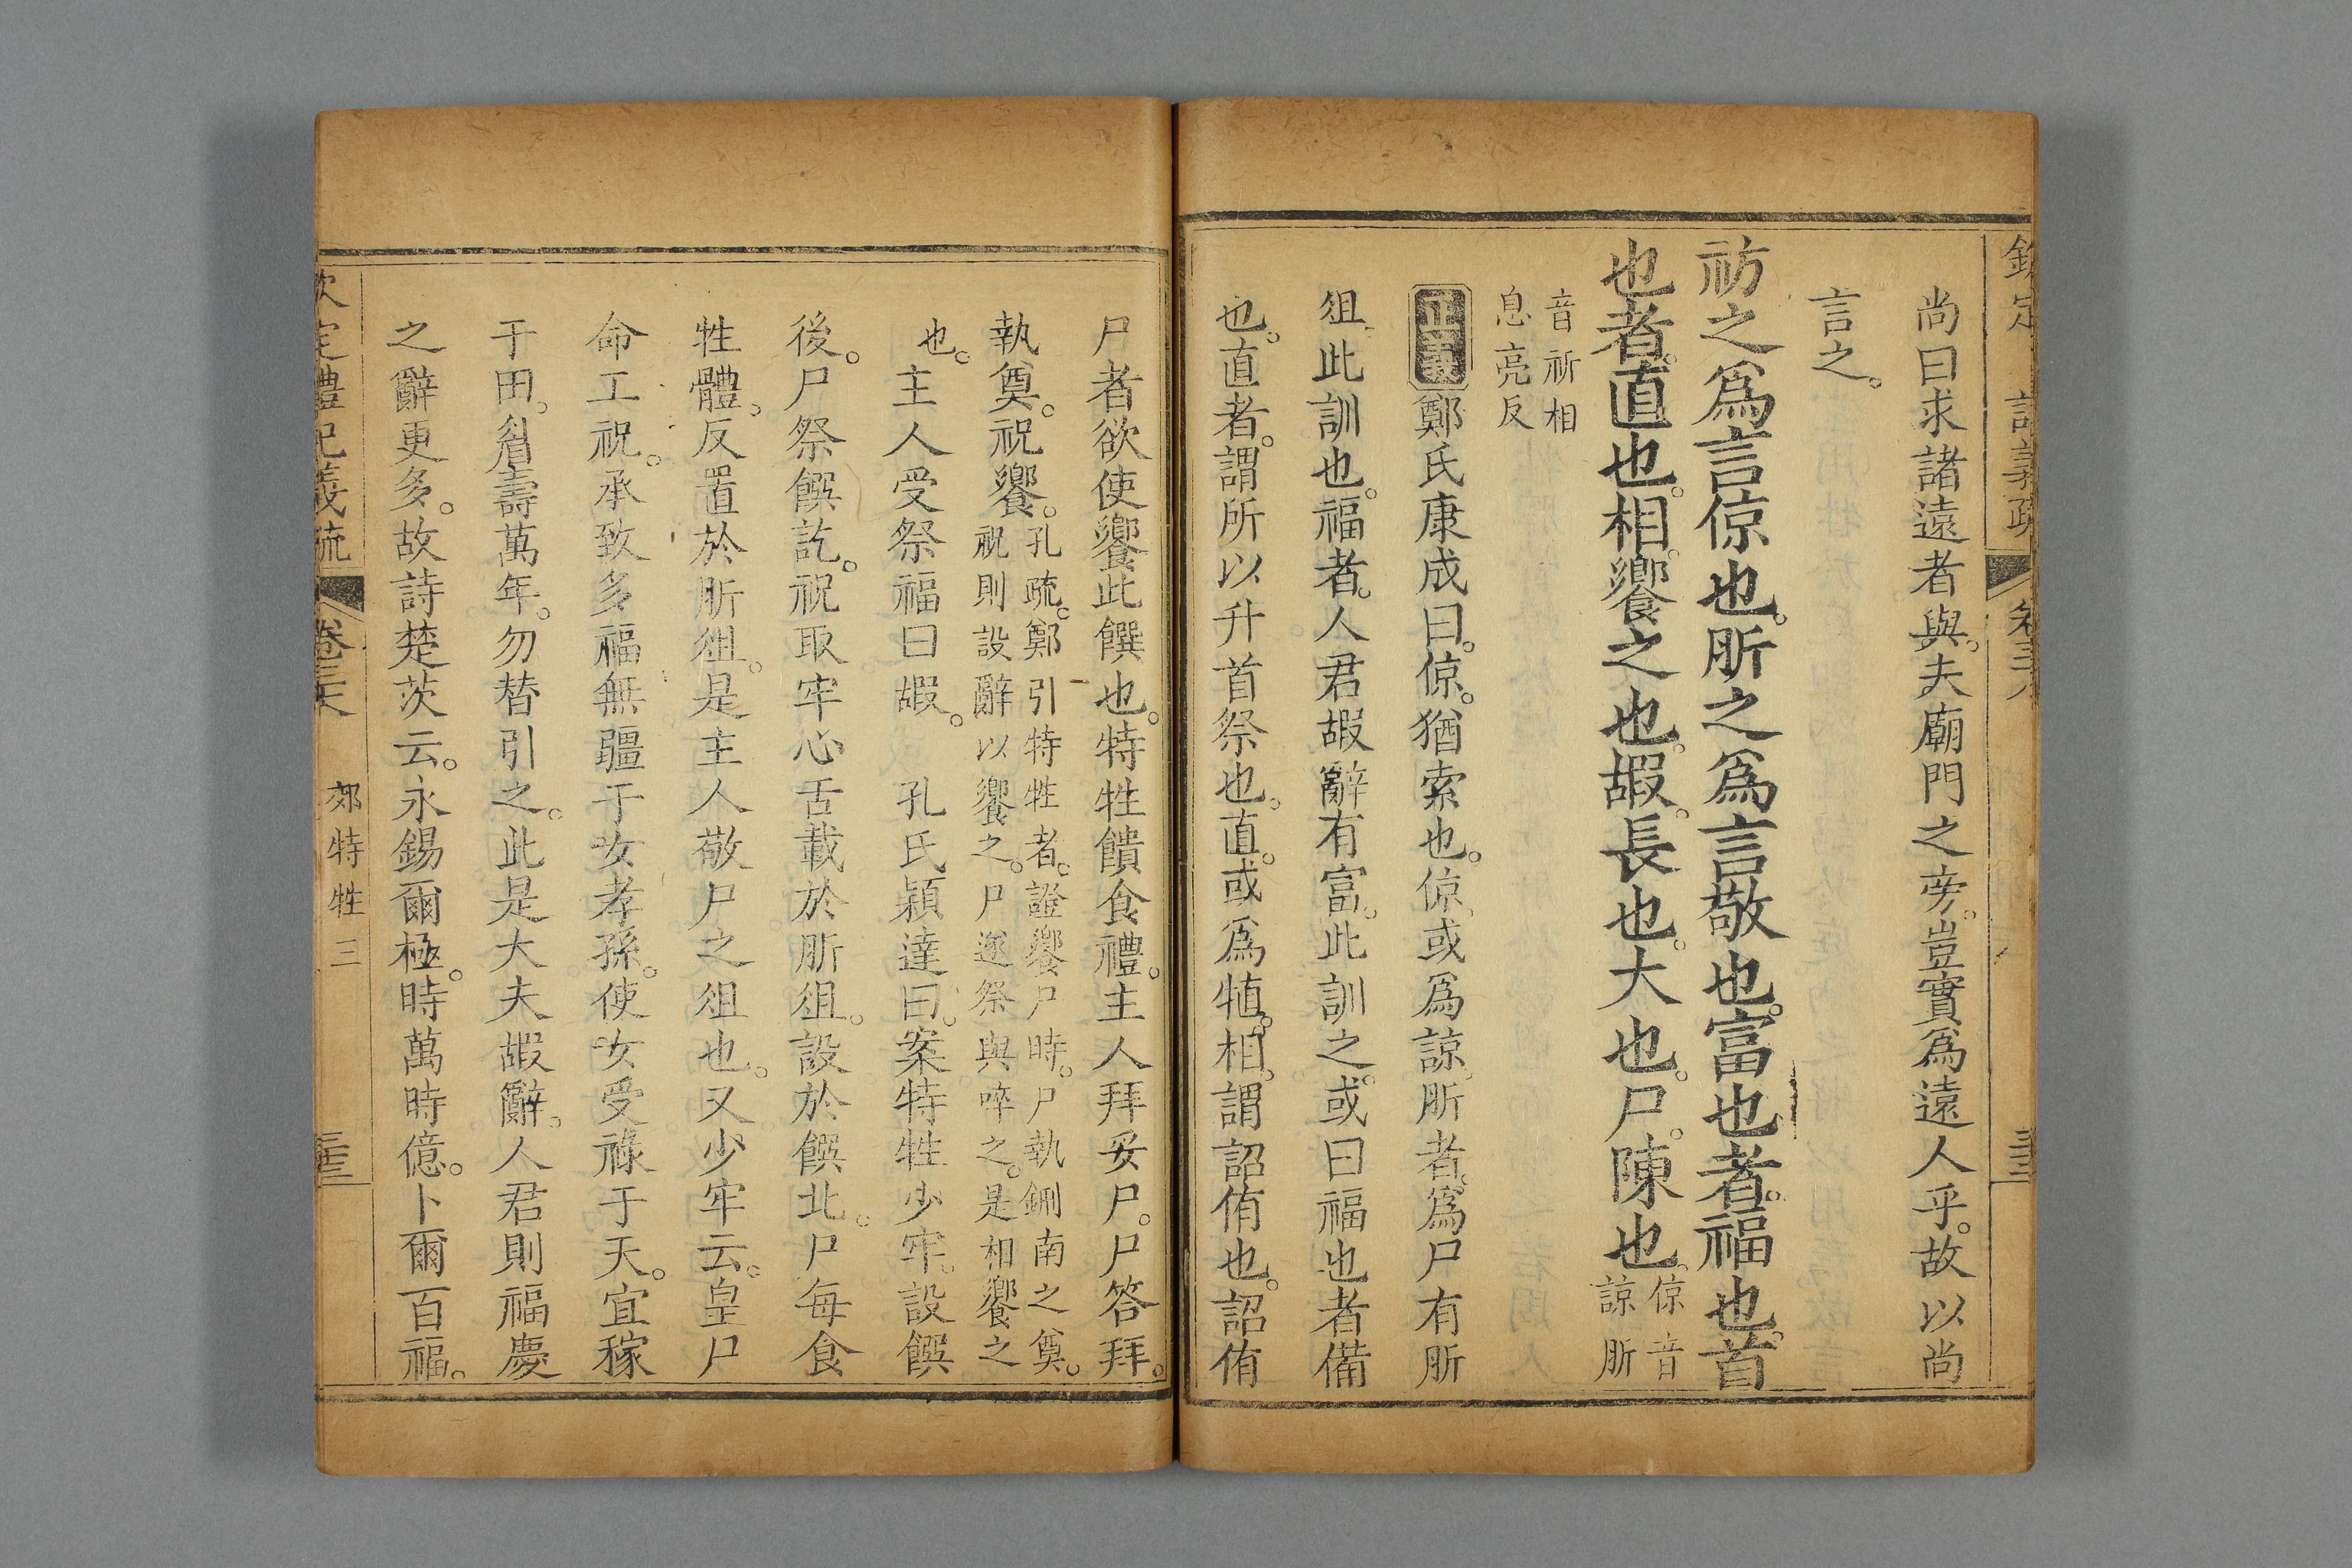 尚曰求諸遠者與。夫廟門之旁。豈實爲遠人乎。故以尚
言之。
祊之爲言倞也。肵之爲言敬也。富也者。福也。首
也者。直也。相。饗之也。嘏。長也。大也。尸。陳也。倞音諒肵
音祈相息亮反
正義鄭氏康成曰。倞。猶索也。倞。或爲諒。肵者。爲尸有肵
俎。此訓也。福者。人君嘏辭有富。此訓之。或曰福也者備
也。直者。謂所以升首祭也。直。或爲犆。相。謂詔侑也。詔侑
尸者欲使饗此饌也。特牲饋食禮。主人拜妥尸。尸答拜。
執奠。祝饗。孔疏。鄭引特牲者。證饗尸時。尸執鉶南之奠。祝則設辭以饗之。尸遂祭與啐之。是相饗之
也。主人受祭福曰嘏。　孔氏穎達曰。案特牲少牢。設饌
後。尸祭饌訖。祝取牢心舌載於肵俎。設於饌北。尸每食
牲體。反置於肵俎。是主人敬尸之俎也。又少牢云。皇尸
命工祝。承致多福無疆于女孝孫。使女受祿于天。宜稼
于田。眉壽萬年。勿替引之。此是大夫嘏辭。人君則福慶
之辭更多。故詩楚茨云。永錫爾極。時萬時億。卜爾百福。
欽定禮記義疏
卷三十六
郊特牲三